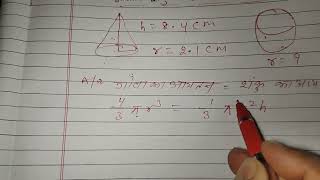 h = 8.4 cm
r = 2.1 cm
r = 9
A/q गोले का आयतन = शंकु का आय
4/3 π r³ = 1/3 π r²h